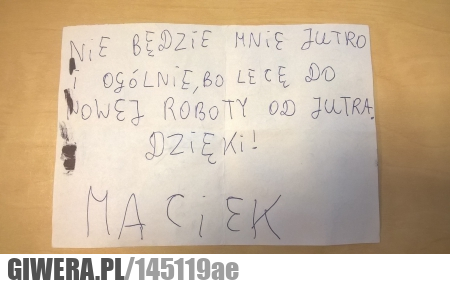 NIE BĘDZIE MNIE JUTRO
I OGÓLNIE, BO LECĘ DO
NOWEJ ROBOTY OD JUTRA.
DZIĘKI!
MACIEK
GIWERA.PL/145119ae